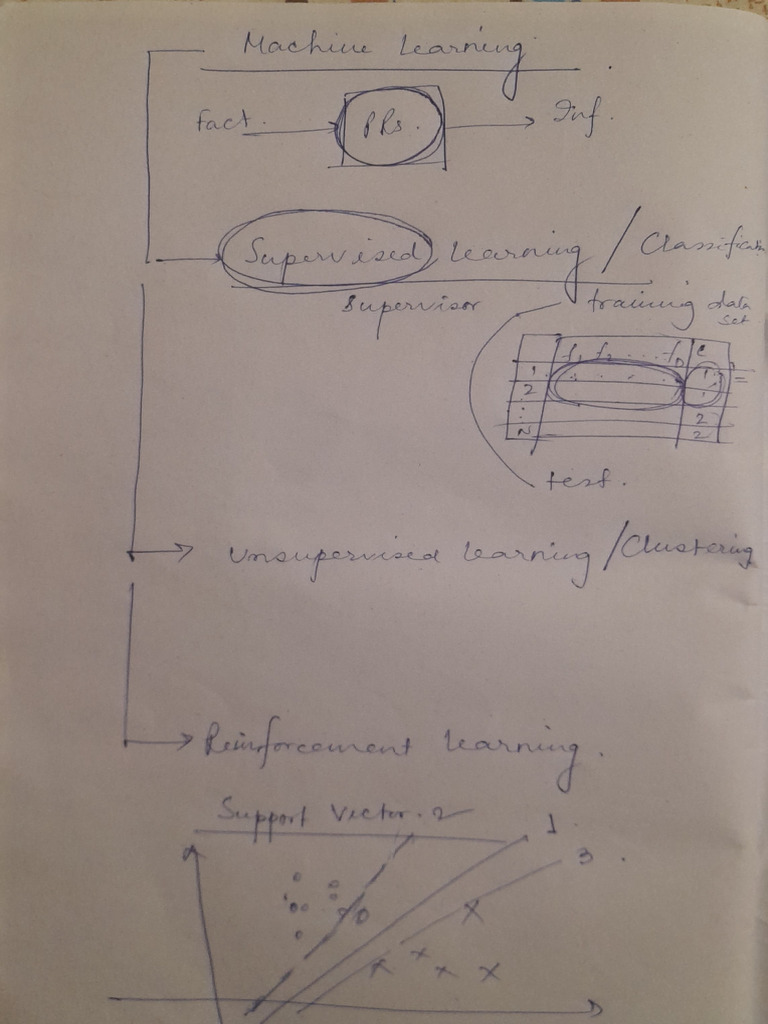 Machine Learning
Fact. PRs. Inf.
Supervised Learning / Classification
Supervisor training data set
f1 f2 .... fD C
1 1
2 1
: 2
N 2
test.
Unsupervised Learning / Clustering
Reinforcement Learning.
Support Vector. 2 1
3.